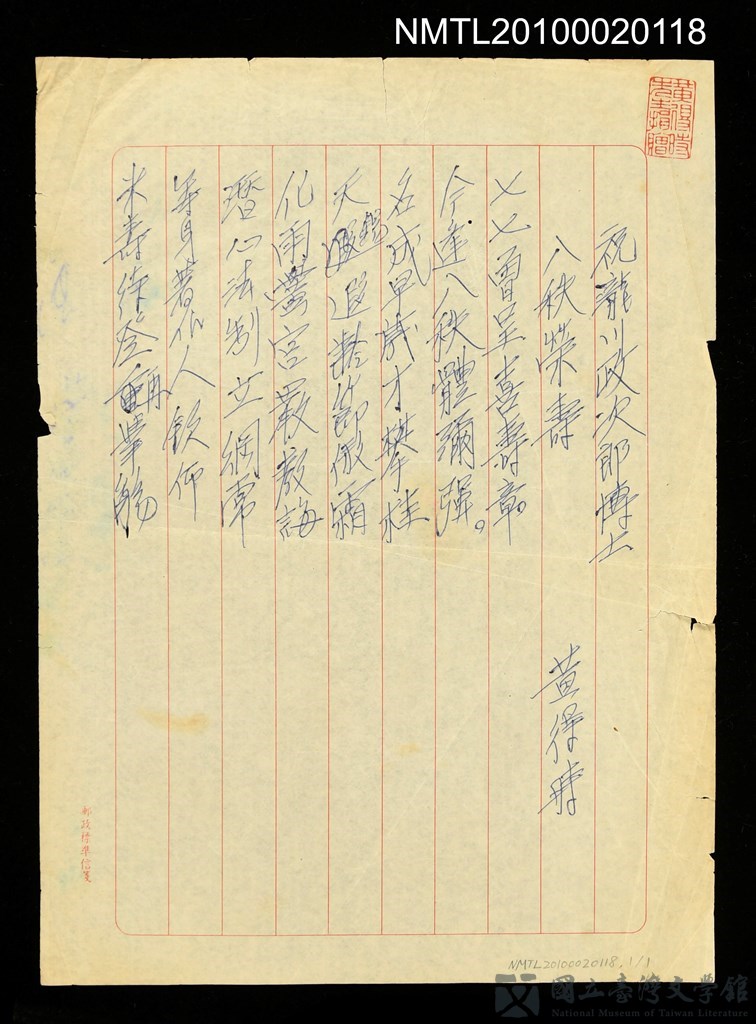 NMTL20100020118
黃得時先生捐贈
祝瀧川政次郎博士
八秩榮壽
黃得時
七七曾呈喜壽章。
今逢八秩體彌強。
名成早歲才攀桂
天錫遐齡節傲霜
化雨黌宮嚴教誨
潛心法制立綱常
等身著作人欽仰
米壽待登再舉觴
郵政標準信箋
NMTL20100020118. 1/1
國立臺灣文學館
National Museum of Taiwan Literature